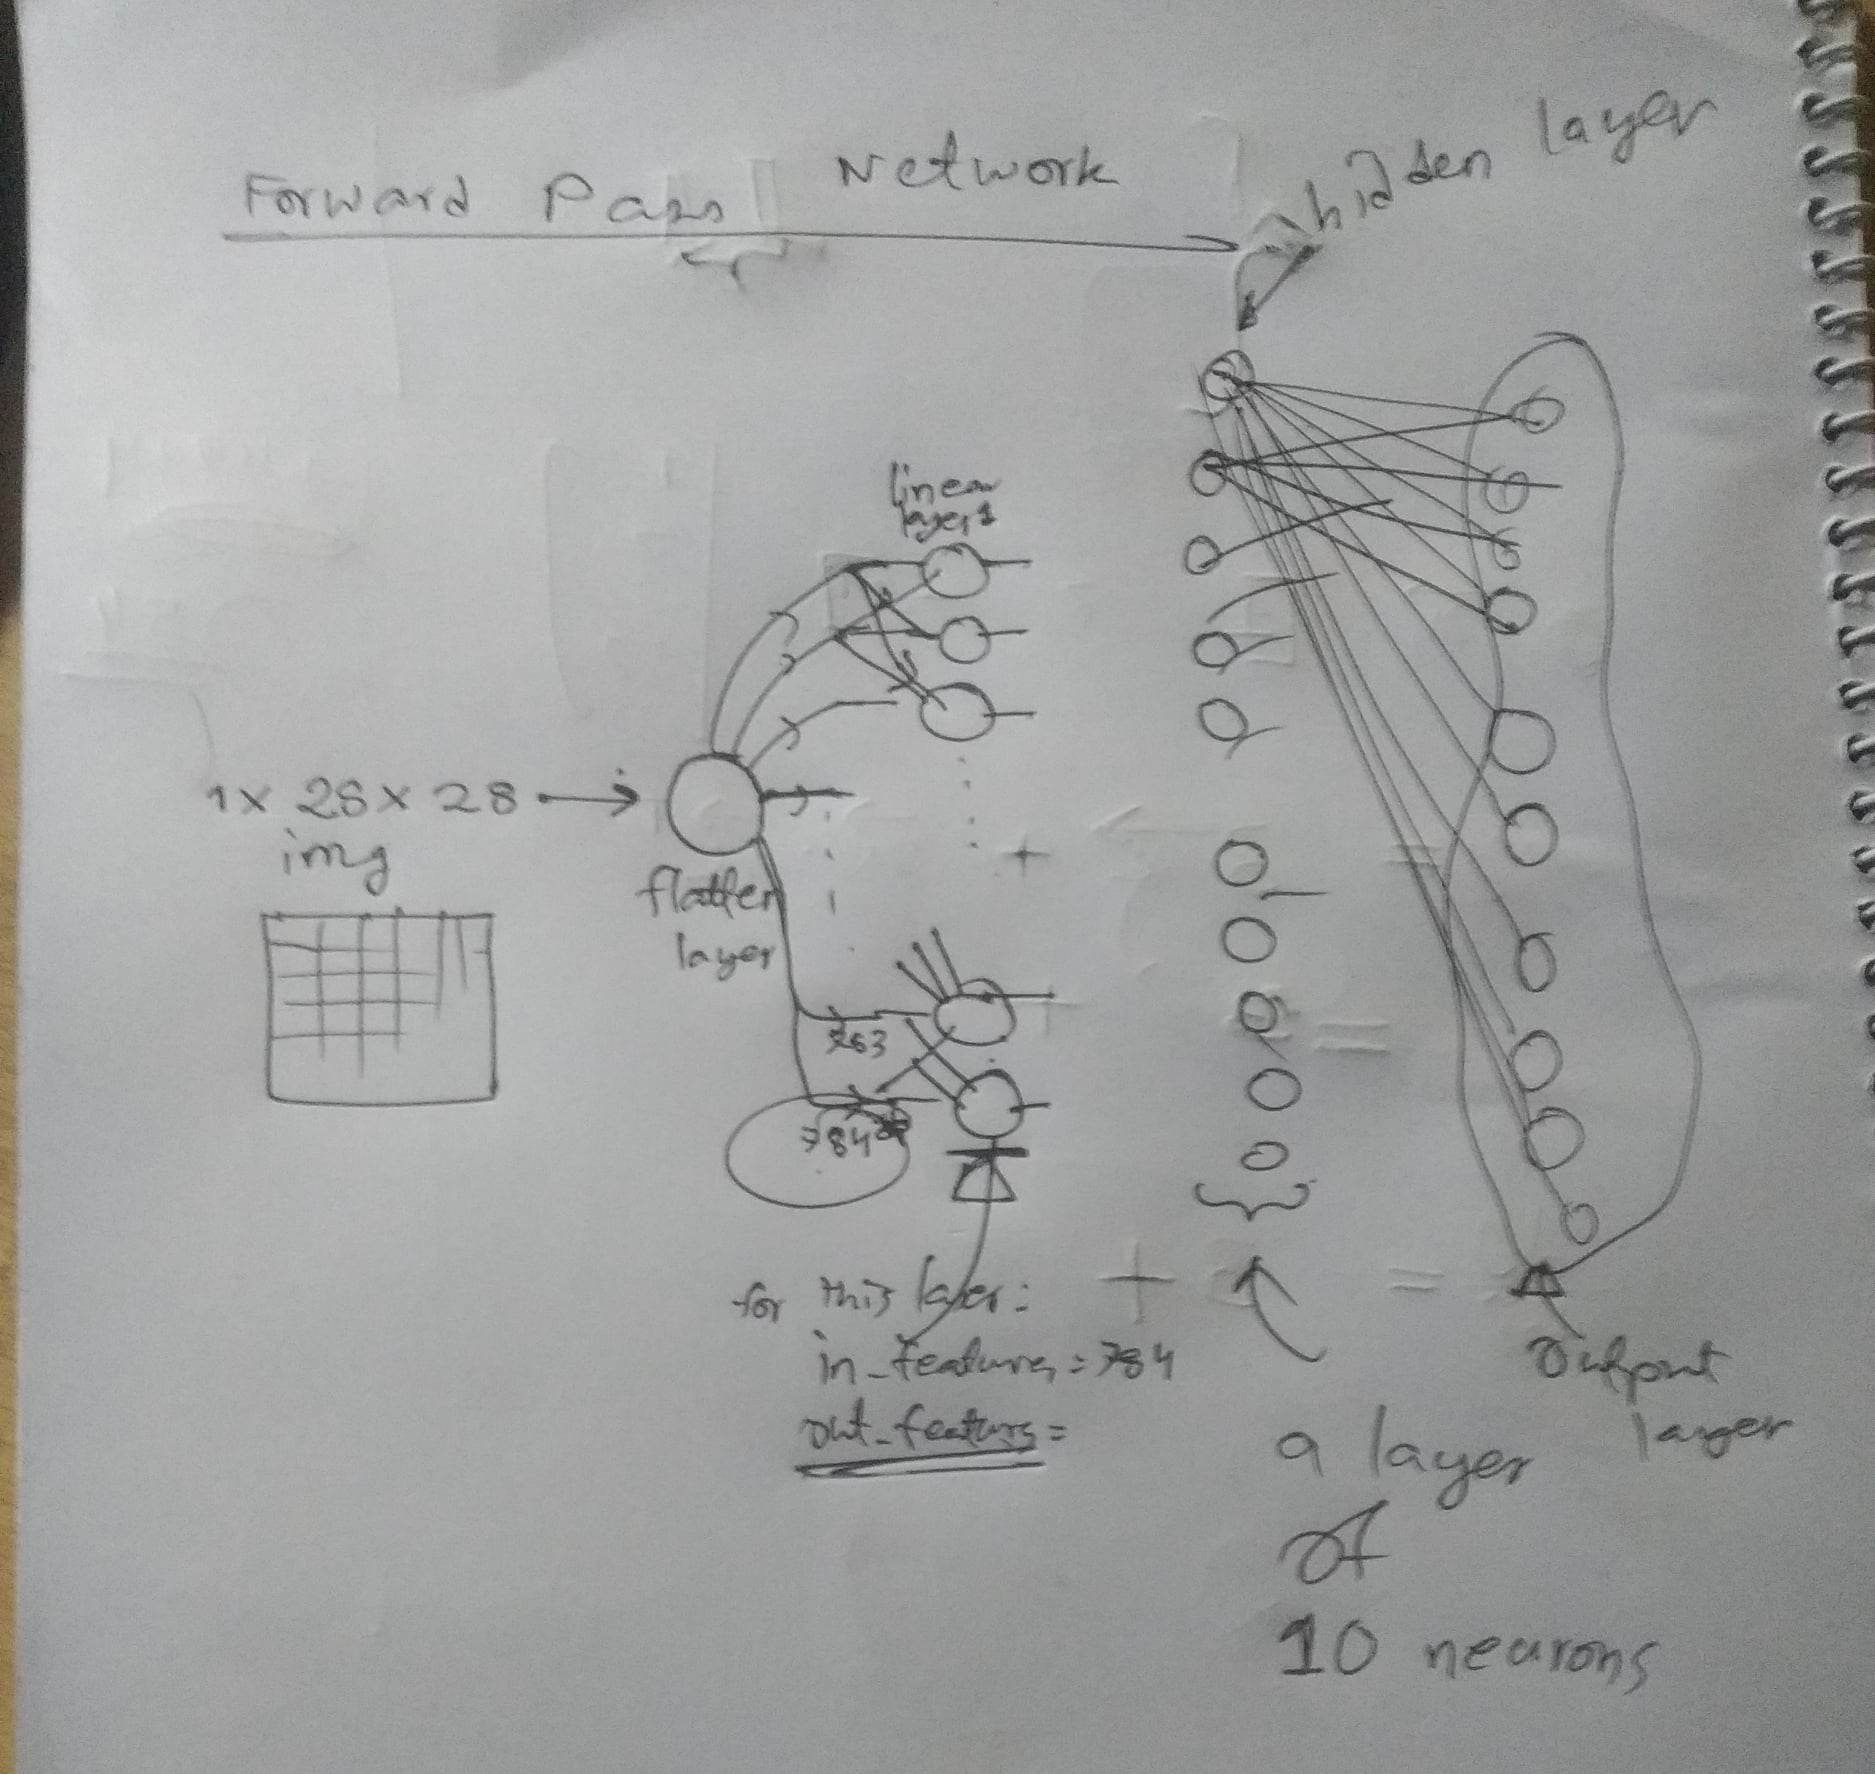 Forward Pass Network
hidden layer
linear
layer 1
1x 28 x 28
img
flatten
layer
783
784
for this layer:
in_features = 784
out_features =
+
=
Output
layer
a layer
of
10 neurons